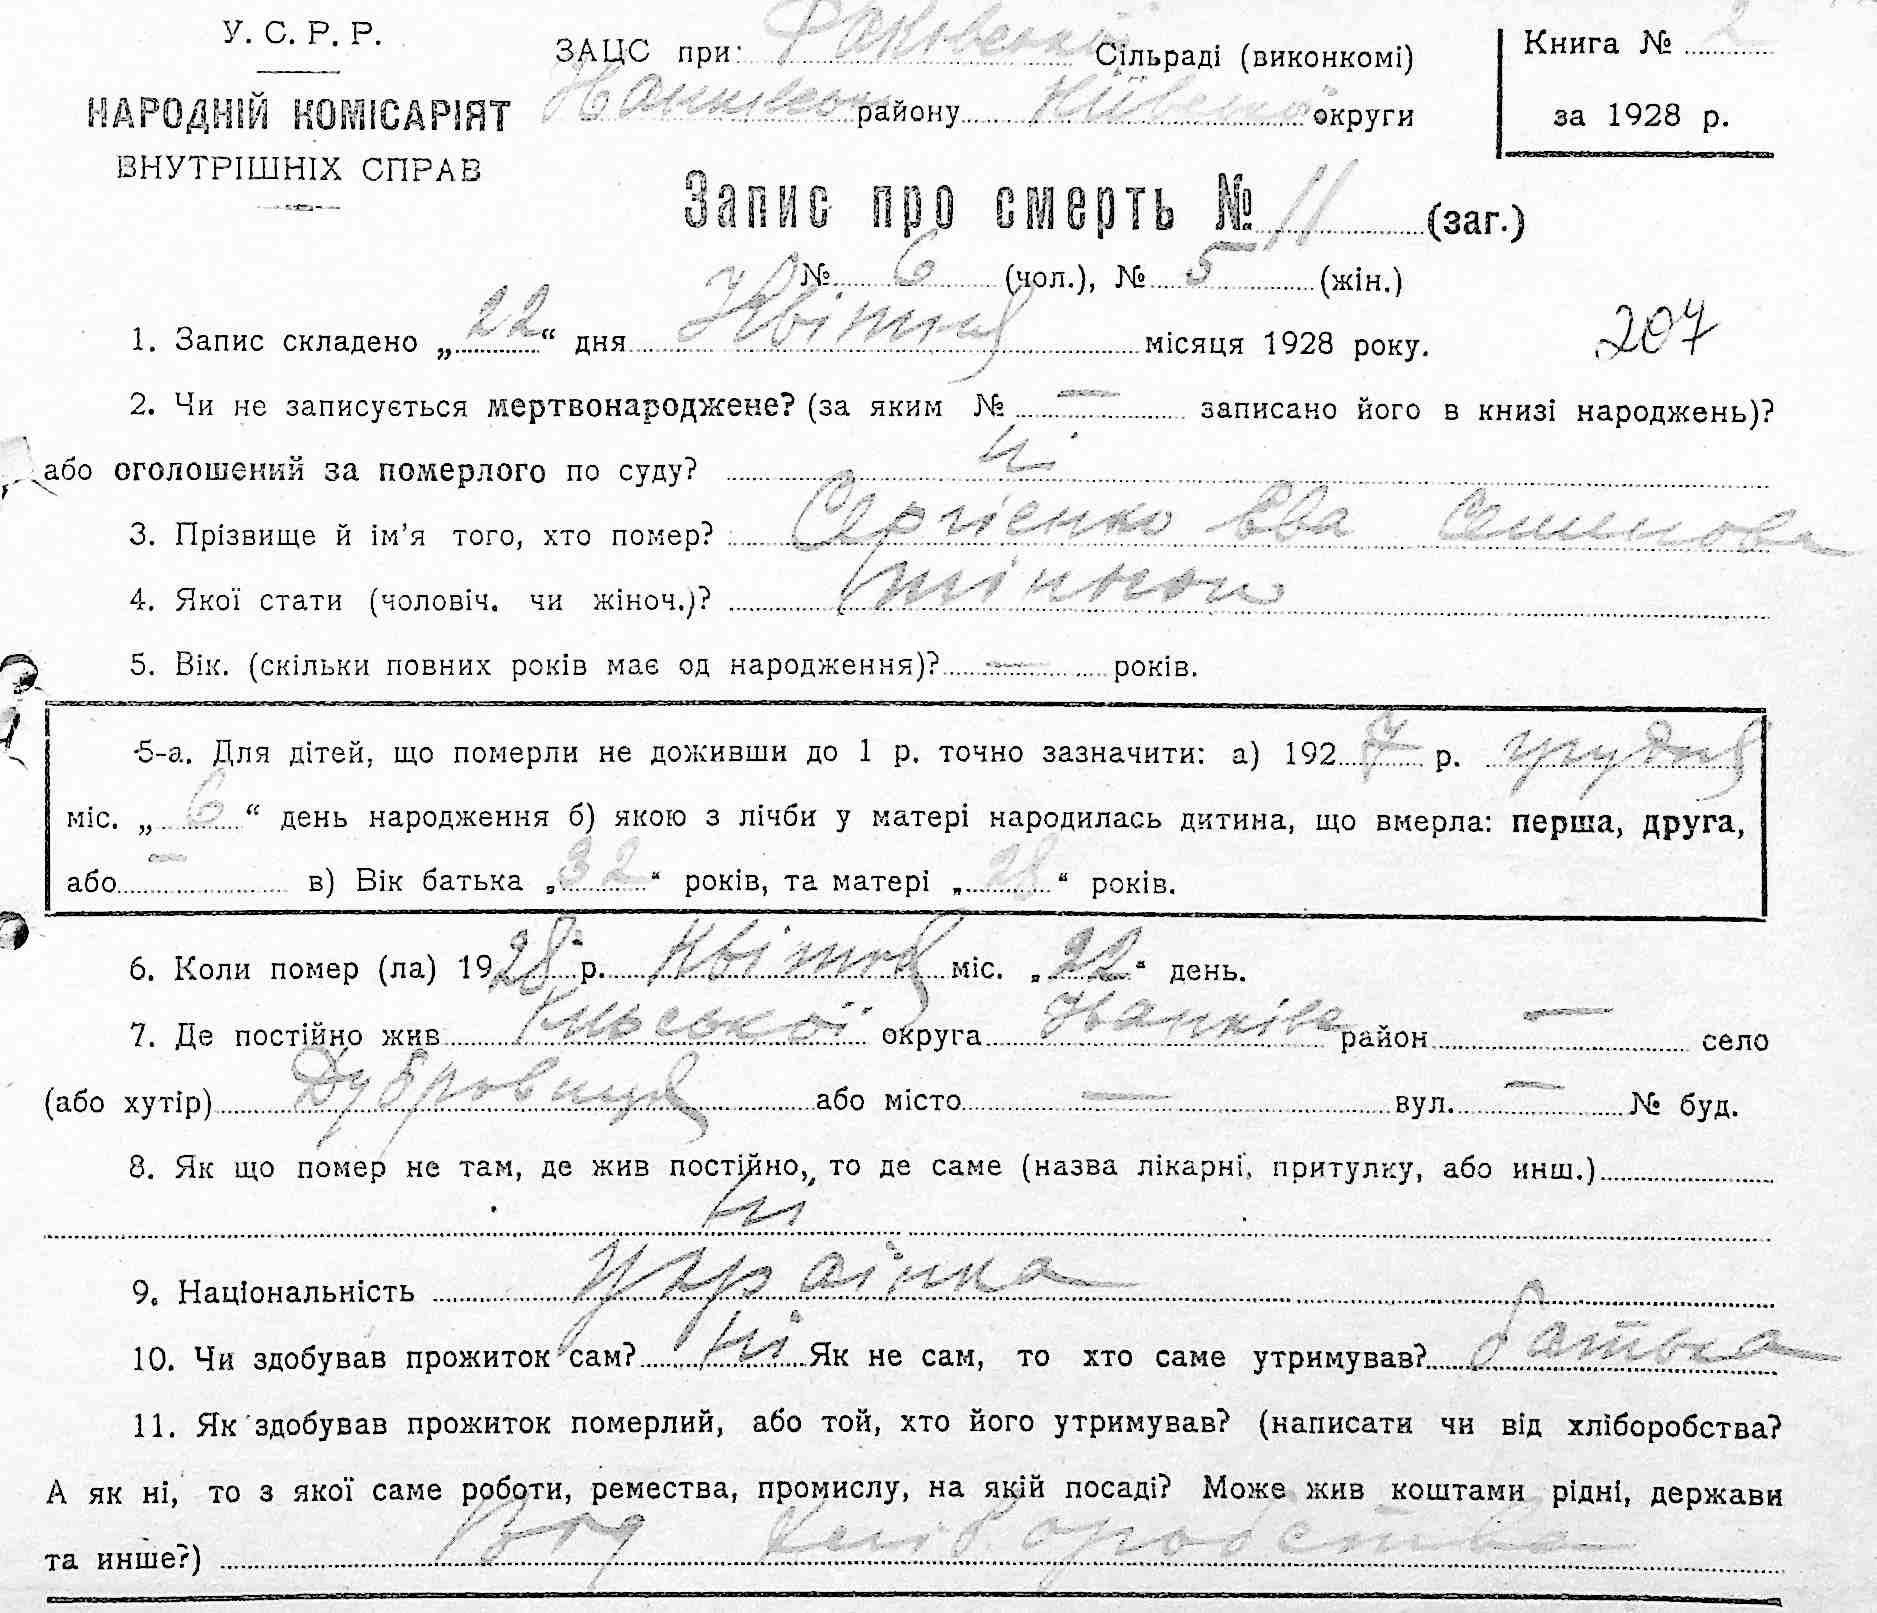 У. С. Р. Р.
НАРОДНІЙ КОМІСАРІЯТ
ВНУТРІШНІХ СПРАВ
ЗАЦС при: Сільраді (виконкомі)
району округи
Книга № 2
за 1928 р.
Запис про смерть № 11 (заг.)
№ 6 (чол.), № 5 (жін.)
1. Запис складено „22“ дня Квітня місяця 1928 року.
207
2. Чи не записується мертвонароджене? (за яким № — записано його в книзі народжень)?
або оголошений за померлого по суду? ні
3. Прізвище й ім’я того, хто помер? Сергієнко Єва Семенова
4. Якої стати (чоловіч. чи жіноч.)?
5. Вік. (скільки повних років має од народження)? — років.
5-а. Для дітей, що померли не доживши до 1 р. точно зазначити: а) 1927 р. грудня
міс. „6“ день народження б) якою з лічби у матері народилась дитина, що вмерла: перша, друга,
або — в) Вік батька „32“ років, та матері „28“ років.
6. Коли помер (ла) 1928 р. Квітня міс. „22“ день.
7. Де постійно жив округа район — село
(або хутір) Дубровиця або місто — вул. — № буд.
8. Як що помер не там, де жив постійно, то де саме (назва лікарні, притулку, або инш.)
ні
9. Національність українка
10. Чи здобував прожиток сам? ні Як не сам, то хто саме утримував? батька
11. Як здобував прожиток померлий, або той, хто його утримував? (написати чи від хліборобства?
А як ні, то з якої саме роботи, ремества, промислу, на якій посаді? Може жив коштами рідні, держави
та инше?) Від хліборобства